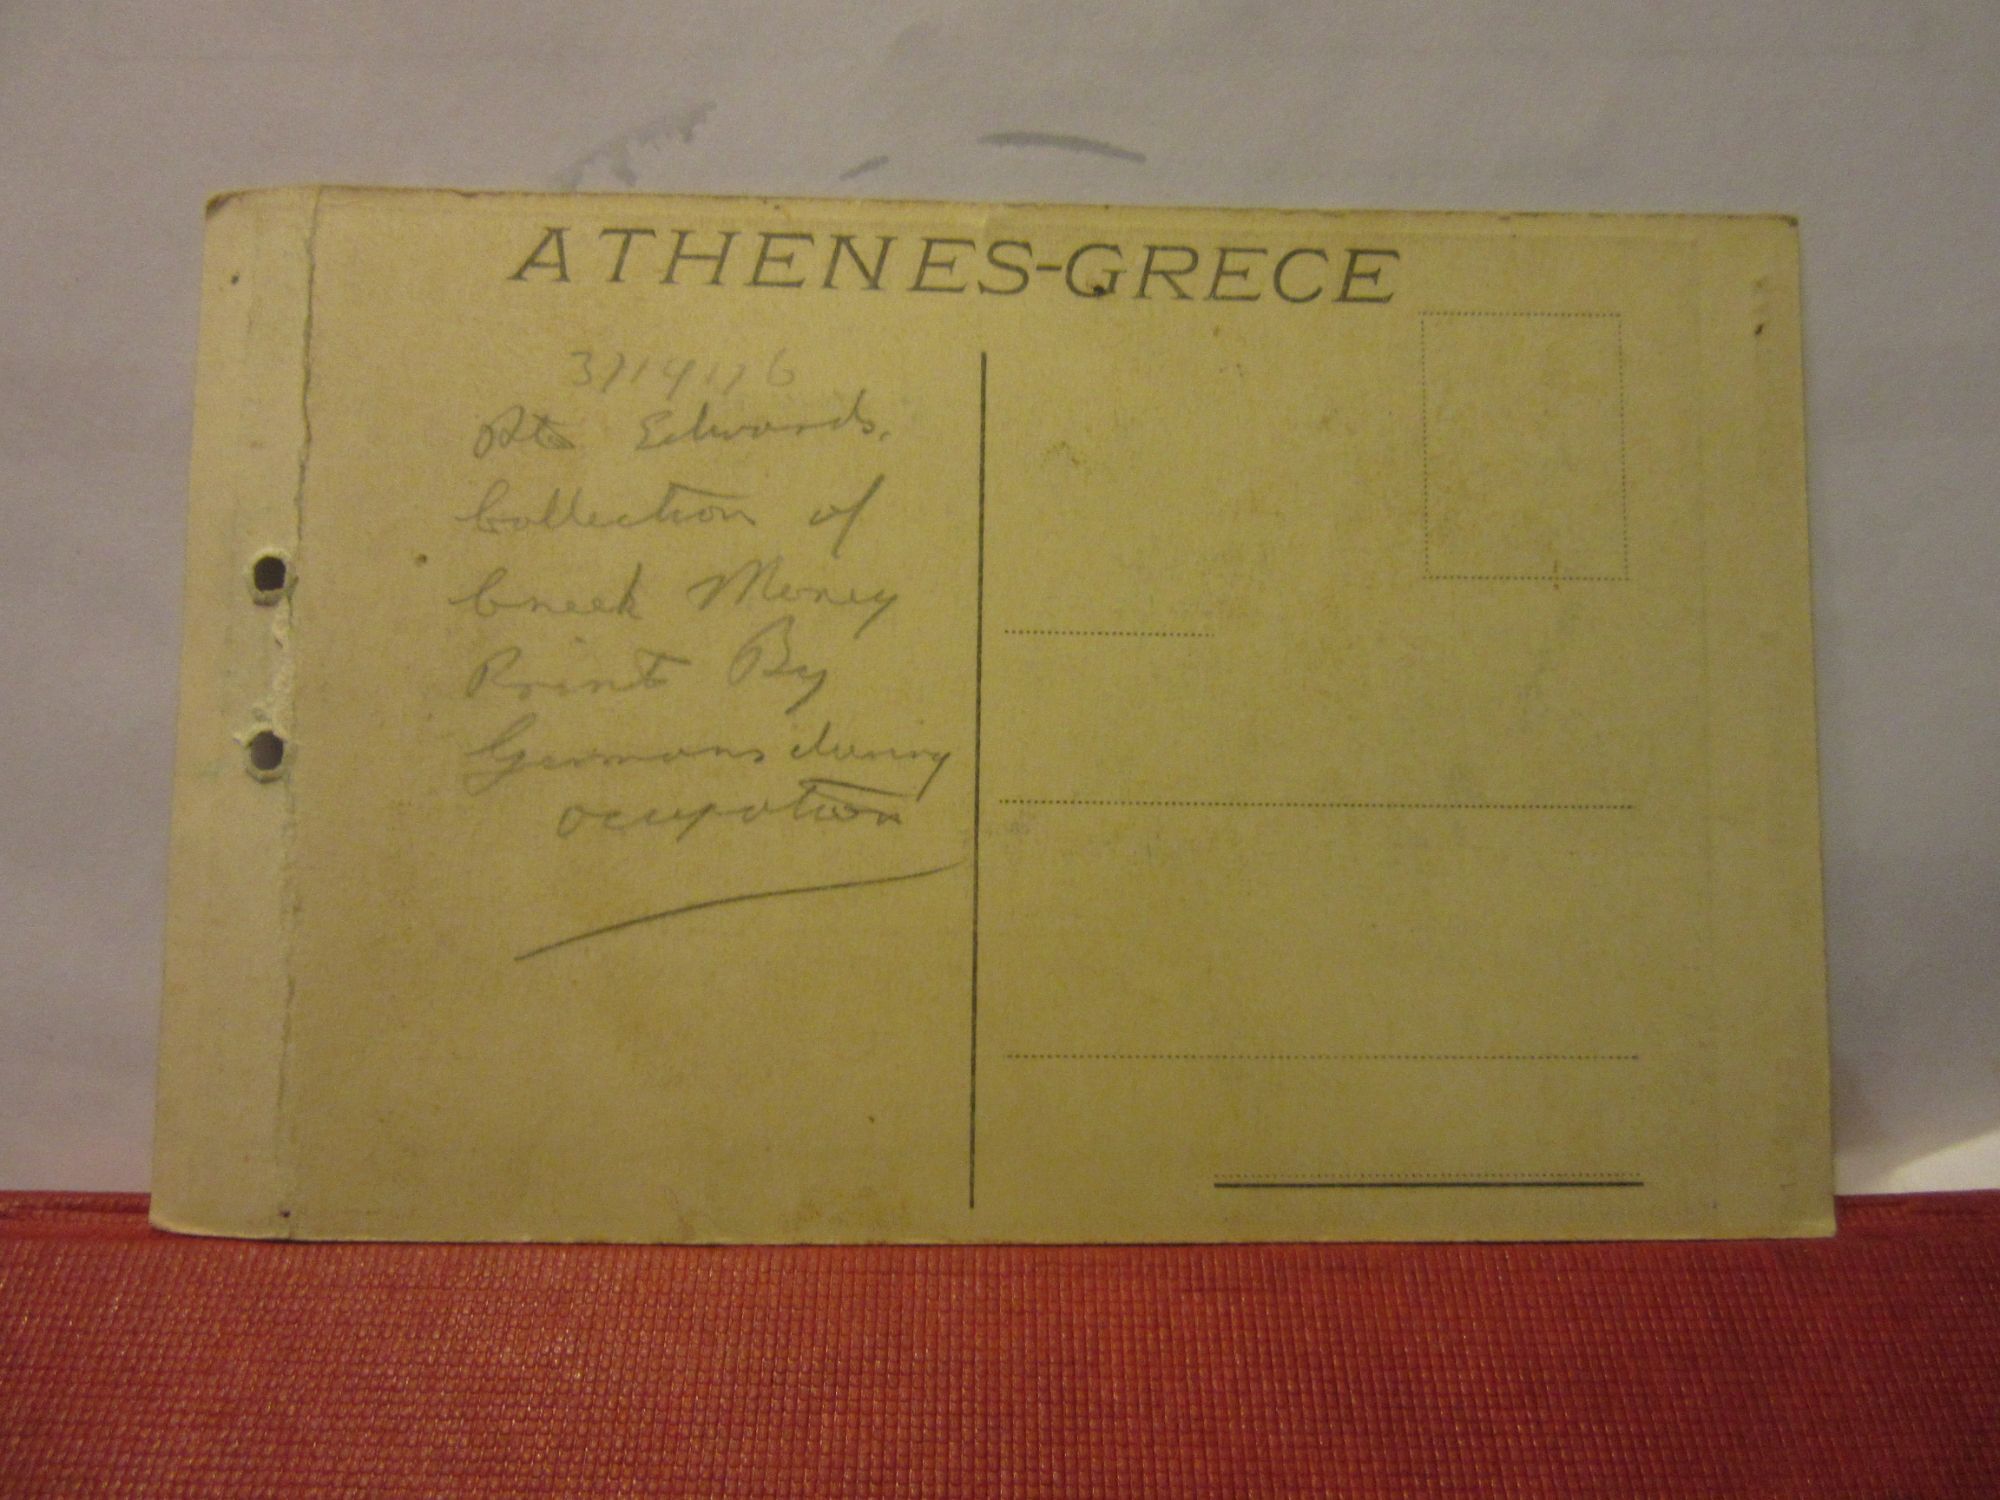 ATHENES-GRECE
3714176
Pte Edwards.
Collection of
Greek Money
Print By
Germans during
ocupation